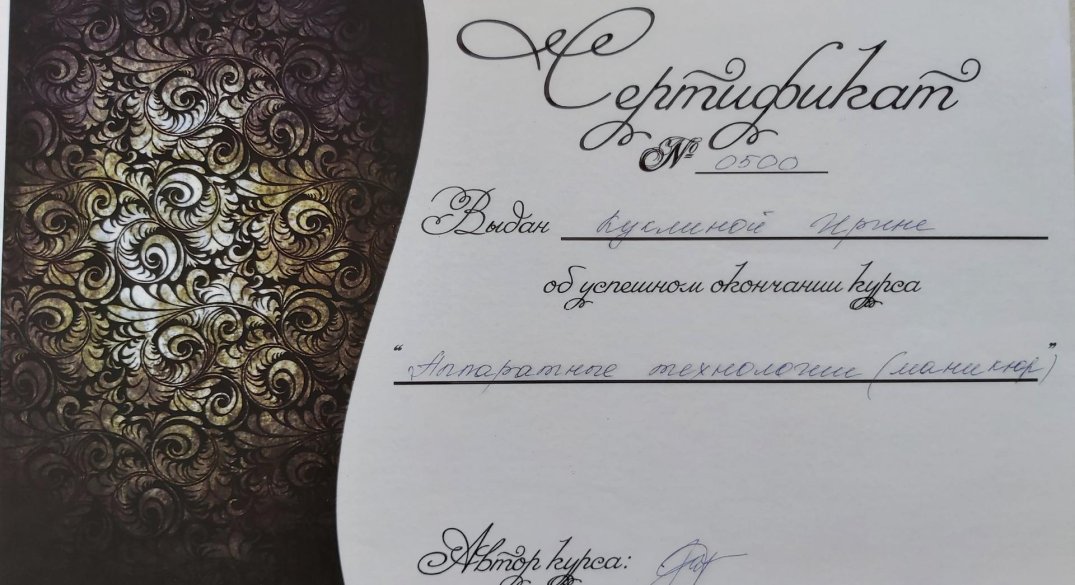 Сертификат
№ 0500
Выдан Куклиной Ирине
об успешном окончании курса
"Аппаратные технологии (маникюр)"
Автор курса: